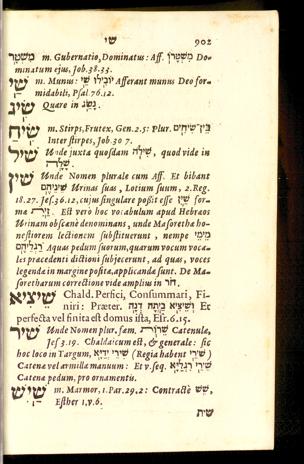 שי 902
מִשְׁטָר m. Gubernatio, Dominatus: Aff. מִשְׁטָרוֹ Do-
minatum ejus, Job. 38.33.
שַׁי m. Munus: יוֹבִילוּ שַׁי Afferant munus Deo for-
midabili, Psal. 76.12.
שִׂיג Quære in נָשַׂג.
שִׂיחַ m. Stirps, Frutex, Gen. 2.5: Plur. בֵּין־שִׂיחִים
Inter stirpes, Job. 30 7.
שִׁיל Unde juxta quosdam שִׁילֹה, quod vide in
שָׁלָה.
שִׁין Unde Nomen plurale cum Aff. Et bibant
שֵׁינֵיהֶם Urinas suas, Lotium suum, 2. Reg.
18.27. Jes. 36.12, cujus singulare posit esse שַׁיִן for-
ma זַיִת. Est verò hoc vocabulum apud Hebræos
Urinam obscænè denominans, unde Masorethæ ho-
nestiorem lectionem substituerunt, nempe מֵימֵי
רַגְלֵיהֶם Aquas pedum suorum, quarum vocum voca-
les præcedenti dictioni subjecerunt, ad quas, voces
legenda in margine posita, applicanda sunt. De Ma-
sorethærum correctione vide amplius in חוֹר.
שֵׁיצִיא Chald. Perfici, Consummari, Fi-
niri: Præter. וְשֵׁיצִיא בַּיְתָה דְנָה Et
perfecta vel finita est domus ista, Esr. 6.15.
שִׁיר Unde Nomen plur. fœm. שֵׁרוֹת Catenulæ,
Jes. 3.19. Chaldaicum est, & generale: sic
hoc loco in Targum, שֵׁירֵי יְדַיָּא (Regia habent שֵׁירֵי)
Catenæ vel armilla manuum: Et v. seq. שֵׁירֵי רַגְלַיָּא
Catena pedum, pro ornamentis.
שַׁיִשׁ m. Marmor, 1. Par. 29.2: Contractè שֵׁשׁ,
Esther 1. v. 6.
שׁית